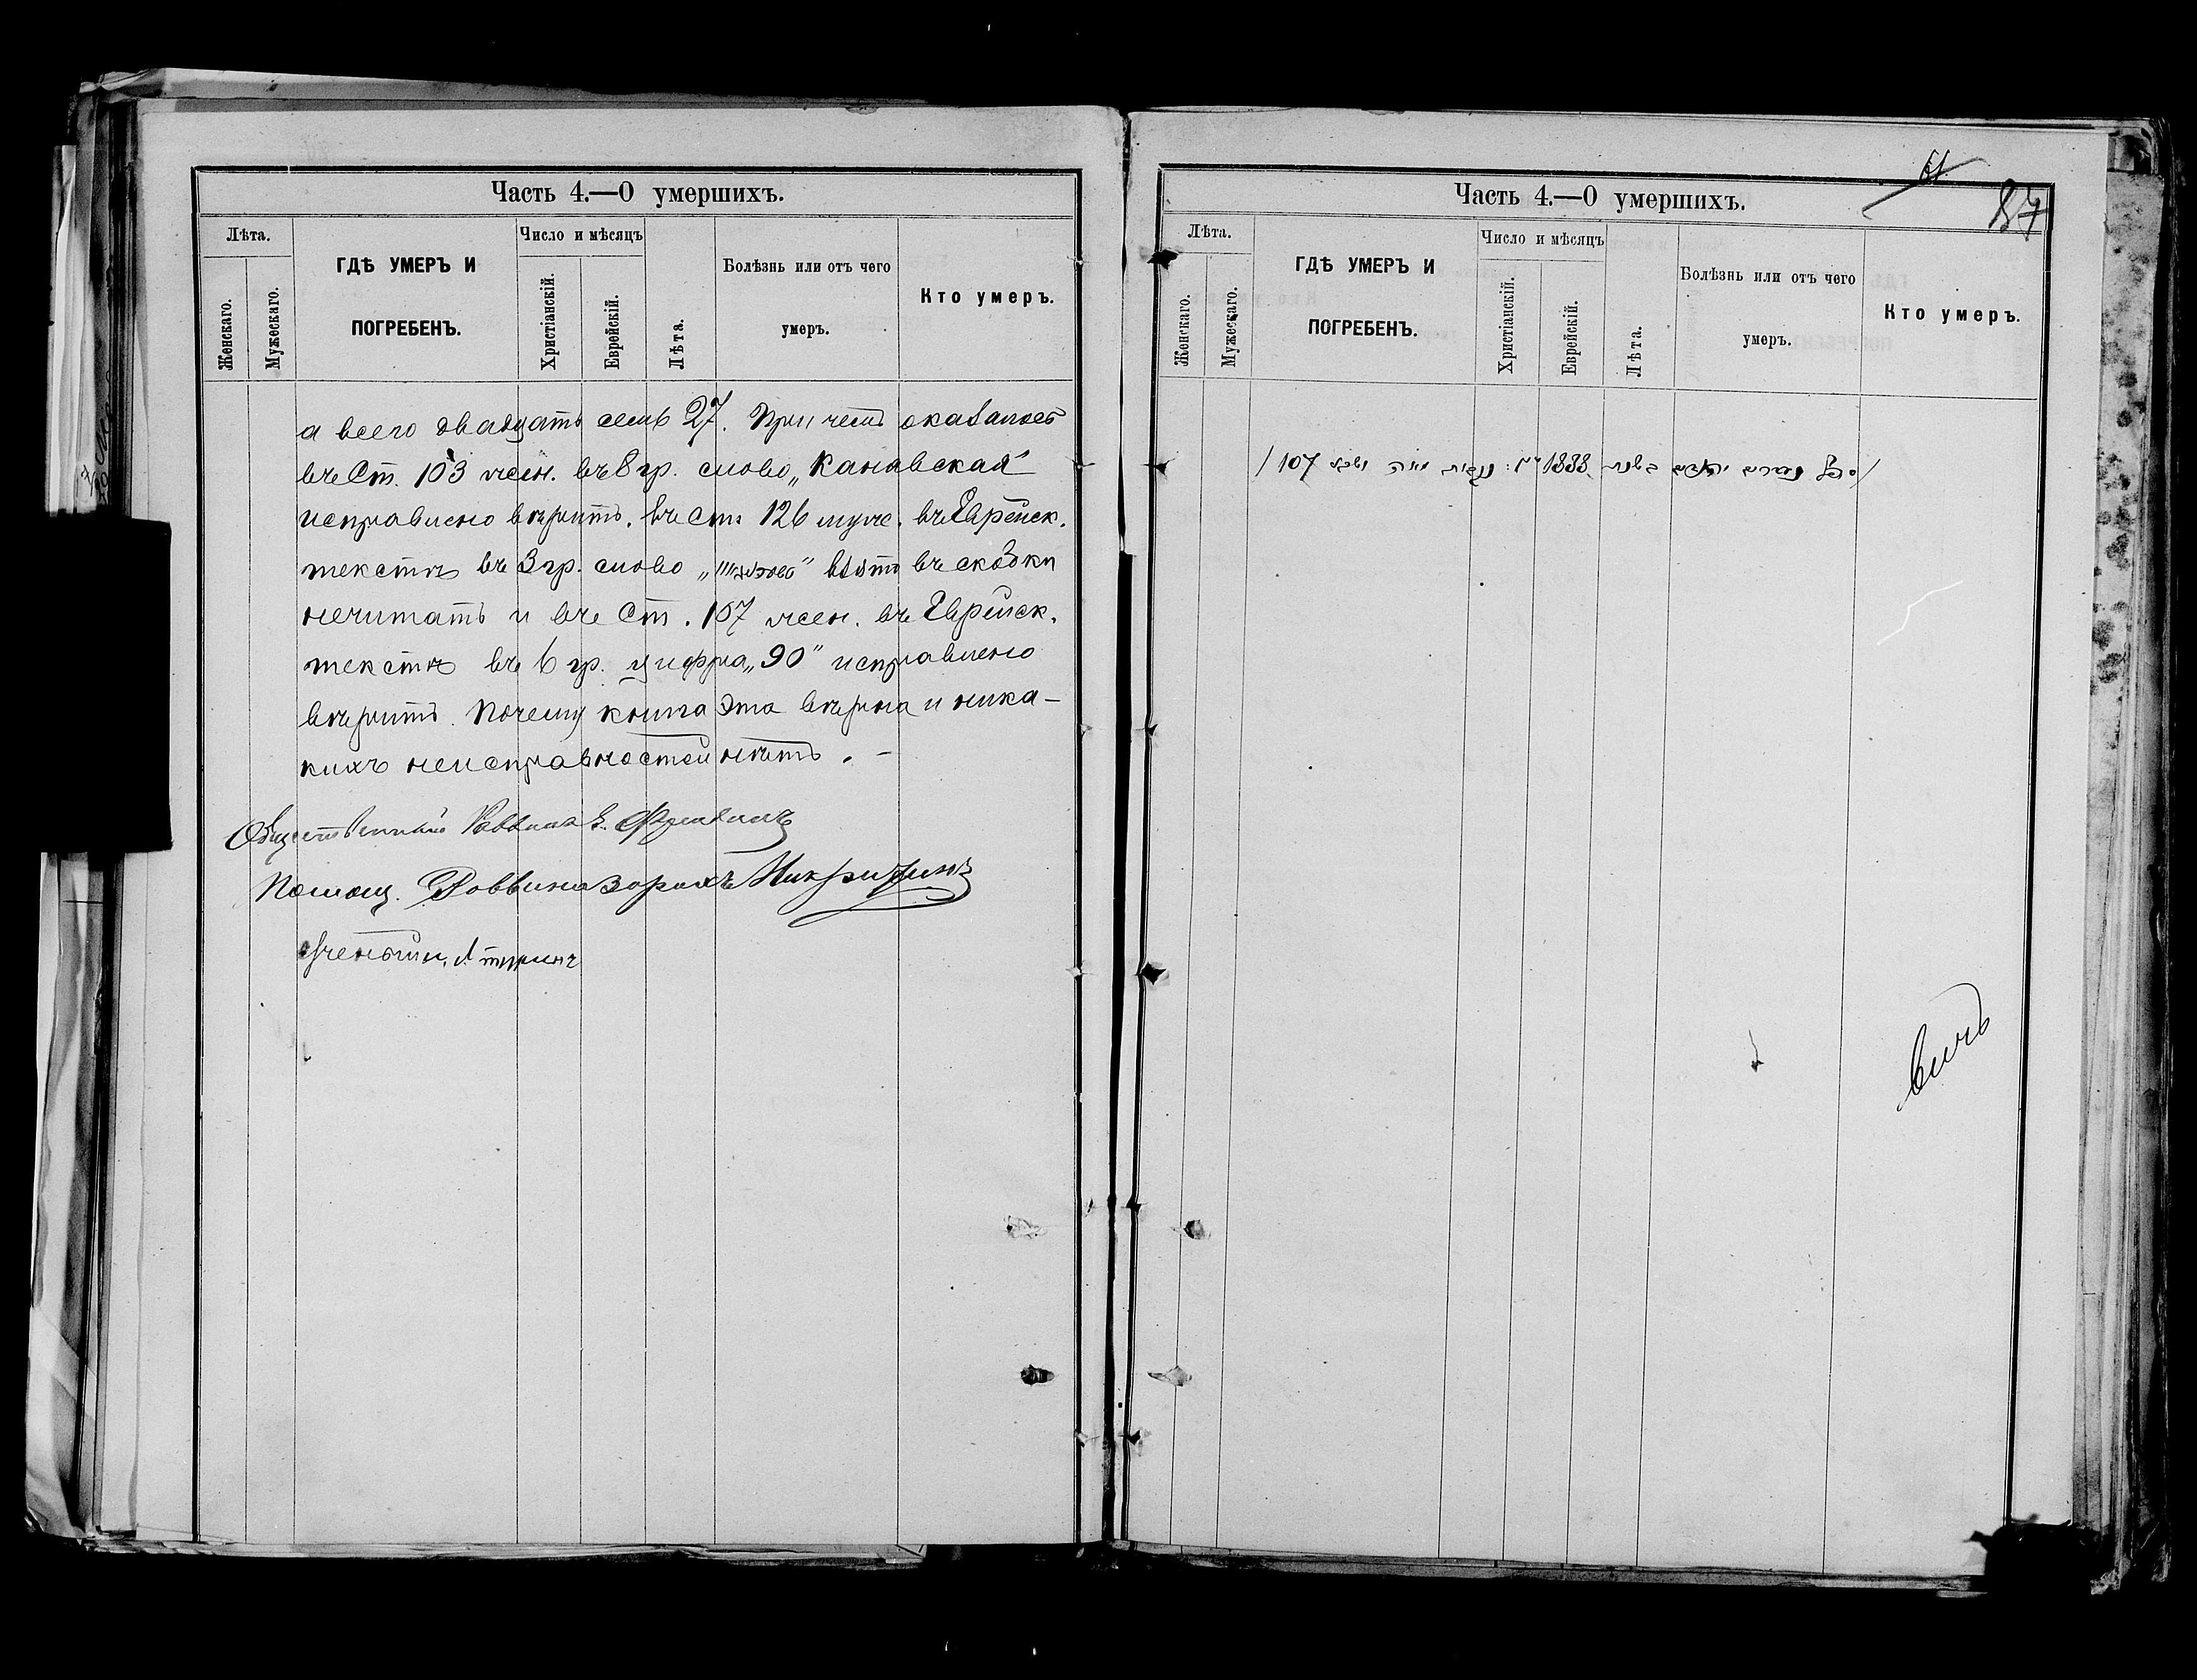 Часть 4.—О умершихъ.
Лѣта.
Женскаго.
Мужескаго.
ГДѢ УМЕРЪ И
ПОГРЕБЕНЪ.
Число и мѣсяцъ
Христіанскій.
Еврейскій.
Лѣта.
Болѣзнь или отъ чего
умеръ.
Кто умеръ.
а всего двадцать семь 27. При чемъ оказалось
въ Ст. 103 жен. въ 8 гр. слово „Канавская"
исправлено вѣрить. въ Ст. 126 муж. въ Еврейск.
текстѣ въ 3 гр. слово взято въ скобки
нечитать и въ Ст. 107 жен. въ Еврейск.
текстѣ въ 6 гр. цифра „90" исправлено
вѣрить. Почему книга эта вѣрна и ника-
кихъ неисправностей нѣтъ. –
Общественный Раввинъ
Помощ. Раввина Зорахъ
Ученый
Часть 4.—О умершихъ.
61
87
Лѣта.
Женскаго.
Мужескаго.
ГДѢ УМЕРЪ И
ПОГРЕБЕНЪ.
Число и мѣсяцъ
Христіанскій.
Еврейскій.
Лѣта.
Болѣзнь или отъ чего
умеръ.
Кто умеръ.
1888
107